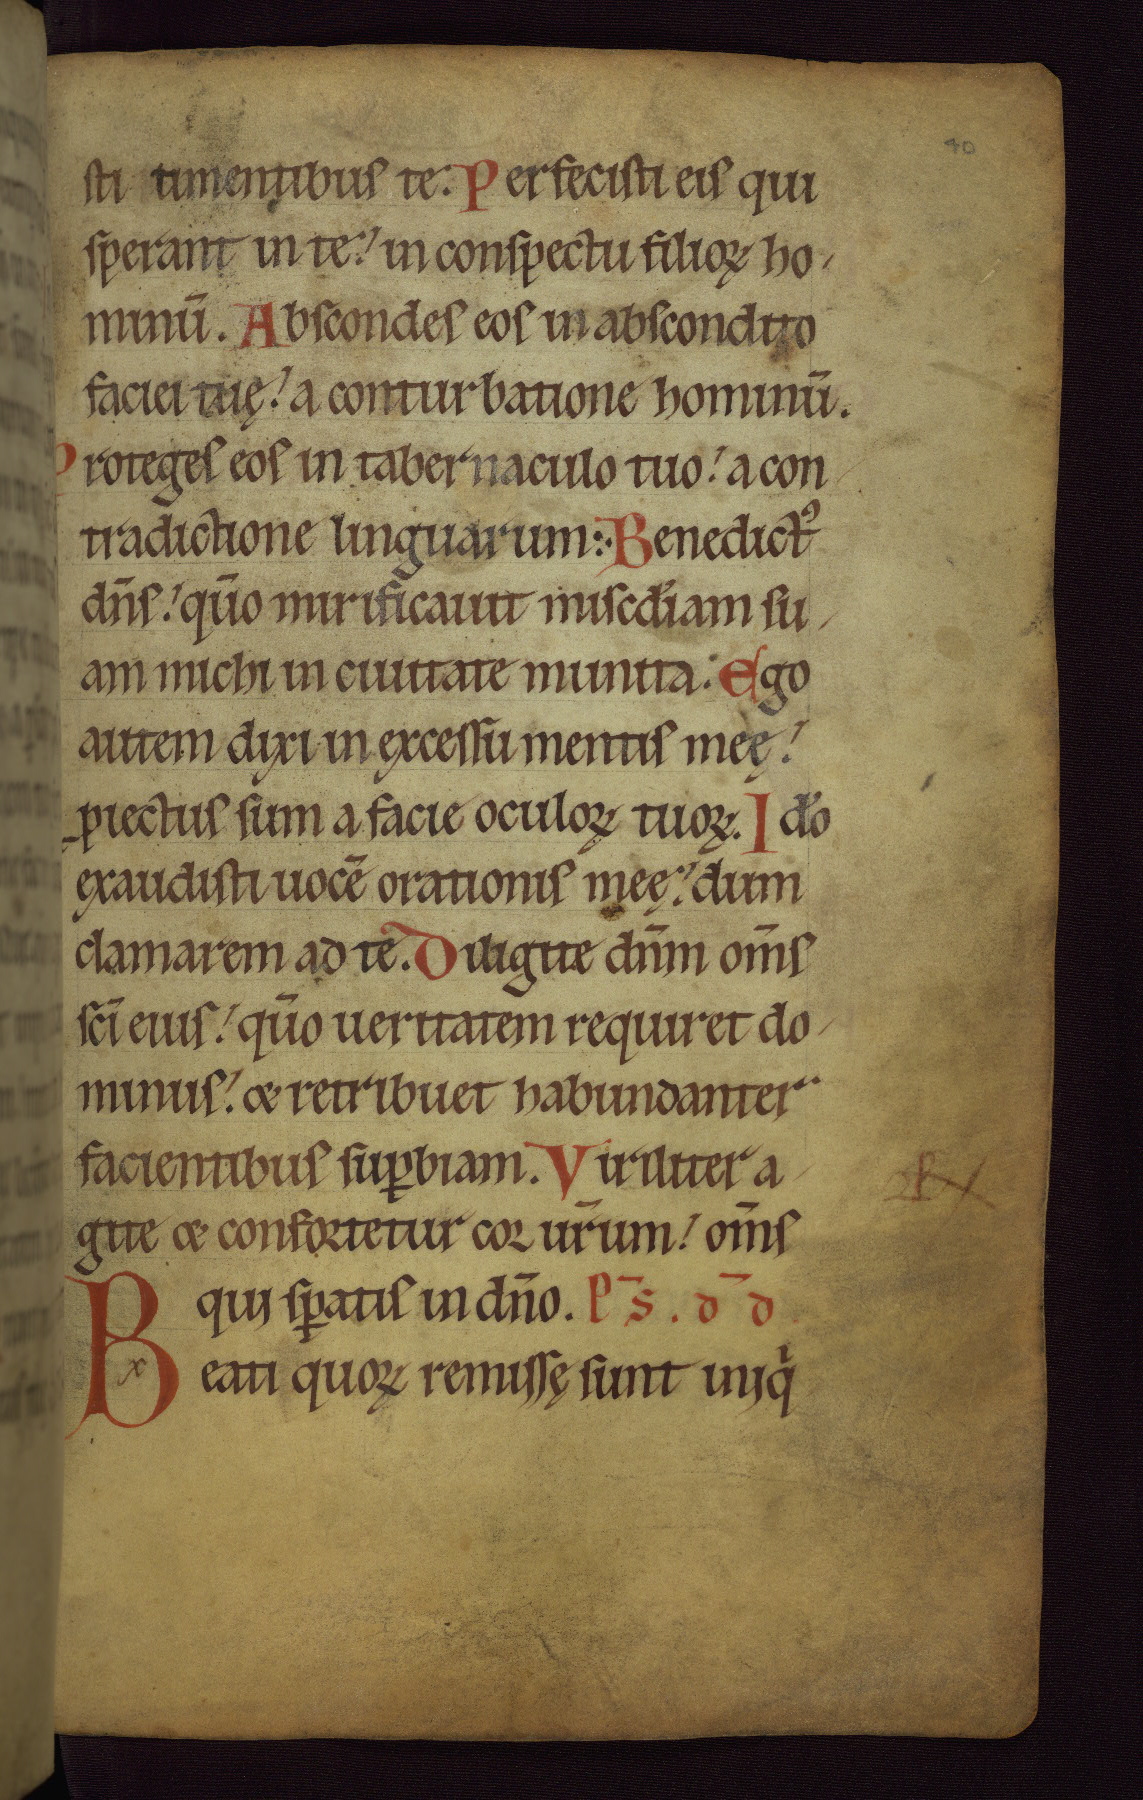 40
sti timentibus te. Perfecisti eis qui
sperant in te! in conspectu filioꝝ ho-
minū. Abscondes eos in abscondito
faciei tuę! a conturbatione hominū.
Proteges eos in tabernaculo tuo! a con-
tradictione linguarum:. Benedictꝰ
dn̄s! qūo mirificauit misc̄diam su-
am michi in ciuitate munita. Ego
autem dixi in excessu mentis meę!
ꝓiectus sum a facie oculoꝝ tuoꝝ. Id̄o
exaudisti uocē orationis meę! dum
clamarem ad te. Diligite dn̄m om̄s
sc̄i eius! qūo ueritatem requiret do-
minus! & retribuet habundanter
facientibus suꝑbiam. Viriliter a-
gite & confortetur cor ur̄um! om̄s
qui sꝑatis in dn̄o. P̄s. d̄d
Beati quoꝝ remissę sunt iniq̇